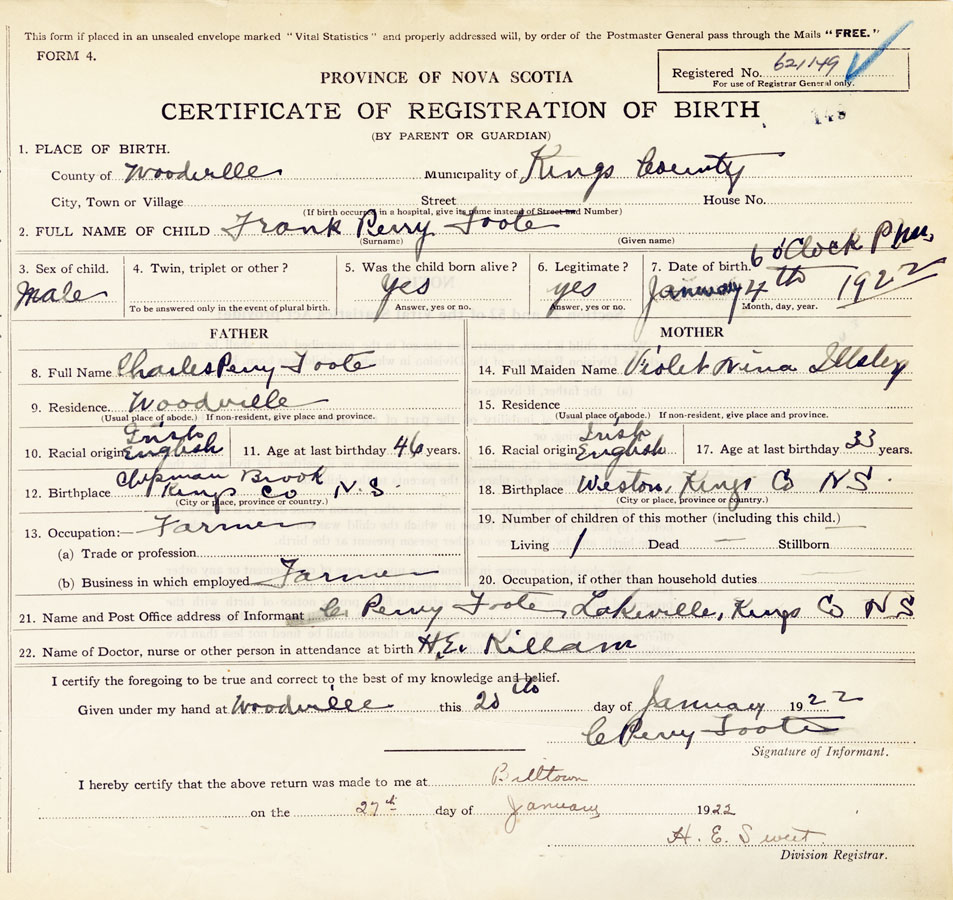 This form if placed in an unsealed envelope marked "Vital Statistics" and properly addressed will, by order of the Postmaster General pass through the Mails "FREE."
FORM 4.
Registered No. 621149
For use of Registrar General only.
PROVINCE OF NOVA SCOTIA
CERTIFICATE OF REGISTRATION OF BIRTH
(BY PARENT OR GUARDIAN)
1. PLACE OF BIRTH.
County of Woodville Municipality of Kings County
City, Town or Village Street House No.
(If birth occurred in a hospital, give its name instead of Street and Number)
2. FULL NAME OF CHILD Frank Perry Foote
(Surname) (Given name)
3. Sex of child. 4. Twin, triplet or other? 5. Was the child born alive? 6. Legitimate? 7. Date of birth. 6 o'Clock P M
Male yes yes January 4th 1922
To be answered only in the event of plural birth. Answer, yes or no. Answer, yes or no. Month, day, year.
FATHER MOTHER
8. Full Name Charles Perry Foote 14. Full Maiden Name Violet Nina Illsley
9. Residence. Woodville 15. Residence
(Usual place of abode.) If non-resident, give place and province. (Usual place of abode.) If non-resident, give place and province.
Irish Irish
10. Racial origin English 11. Age at last birthday 46 years. 16. Racial origin English 17. Age at last birthday 33 years.
Chipman Brook
12. Birthplace Kings Co N.S. 18. Birthplace Weston, Kings Co NS
(City or place, province or country.) (City or place, province or country.)
13. Occupation:— Farmer 19. Number of children of this mother (including this child.)
(a) Trade or profession Living 1 Dead — Stillborn
(b) Business in which employed Farmer 20. Occupation, if other than household duties
21. Name and Post Office address of Informant C Perry Foote, Lakeville, Kings Co NS
22. Name of Doctor, nurse or other person in attendance at birth H.E. Killam
I certify the foregoing to be true and correct to the best of my knowledge and belief.
Given under my hand at Woodville this 20th day of January 1922
C Perry Foote
Signature of Informant.
I hereby certify that the above return was made to me at Billtown
on the 27th day of January 1922
H. E. Sweet
Division Registrar.